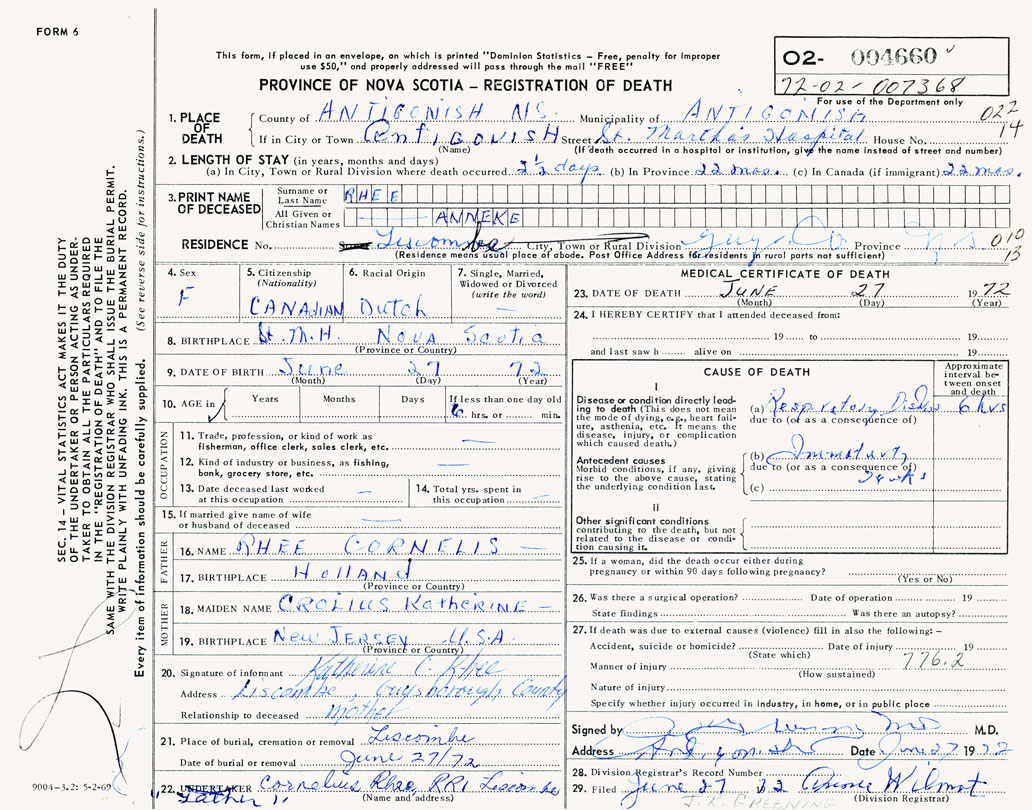 FORM 6
This form, if placed in an envelope, on which is printed "Dominion Statistics – Free, penalty for improper
use $50," and properly addressed will pass through the mail "FREE"
PROVINCE OF NOVA SCOTIA – REGISTRATION OF DEATH
02- 004660
72-02-007368
For use of the Department only
022
14
1. PLACE OF DEATH
County of ANTIGONISH N.S. Municipality of ANTIGONISH
If in City or Town ANTIGONISH Street St. Martha's Hospital House No.
(Name) (If death occurred in a hospital or institution, give the name instead of street and number)
2. LENGTH OF STAY (in years, months and days)
(a) In City, Town or Rural Division where death occurred 2½ days (b) In Province 22 mos. (c) In Canada (if immigrant) 22 mos.
3. PRINT NAME OF DECEASED
Surname or Last Name RHEE
All Given or Christian Names ANNEKE
RESIDENCE No. Street Liscombe City, Town or Rural Division Guys. Co. Province N.S.
010
13
(Residence means usual place of abode. Post Office Address for residents in rural parts not sufficient)
4. Sex
F
5. Citizenship
(Nationality)
CANADIAN
6. Racial Origin
Dutch
7. Single, Married,
Widowed or Divorced
(write the word)
8. BIRTHPLACE St. M.H. Nova Scotia
(Province or Country)
9. DATE OF BIRTH June 27 72
(Month) (Day) (Year)
10. AGE in
Years Months Days If less than one day old
6 hrs. or min.
OCCUPATION
11. Trade, profession, or kind of work as
fisherman, office clerk, sales clerk, etc. —
12. Kind of industry or business, as fishing,
bank, grocery store, etc. —
13. Date deceased last worked
at this occupation —
14. Total yrs. spent in
this occupation —
15. If married give name of wife
or husband of deceased —
FATHER
16. NAME RHEE CORNELIS —
17. BIRTHPLACE Holland
(Province or Country)
MOTHER
18. MAIDEN NAME CROLIUS Katherine —
19. BIRTHPLACE New Jersey U.S.A.
(Province or Country)
20. Signature of informant Katherine C. Rhee
Address Liscombe, Guysborough, County
Relationship to deceased mother
21. Place of burial, cremation or removal Liscombe
Date of burial or removal June 27/72
22. UNDERTAKER Cornelius Rhee, RR1 Liscombe
"Father" (Name and address)
MEDICAL CERTIFICATE OF DEATH
23. DATE OF DEATH JUNE 27 1972
(Month) (Day) (Year)
24. I HEREBY CERTIFY that I attended deceased from:
19 to 19
and last saw h alive on 19
CAUSE OF DEATH
Approximate
interval be-
tween onset
and death
I
Disease or condition directly lead-
ing to death (This does not mean
the mode of dying, e.g., heart fail-
ure, asthenia, etc. It means the
disease, injury, or complication
which caused death.)
(a) Respiratory 6 hrs
due to (or as a consequence of)
Antecedent causes
Morbid conditions, if any, giving
rise to the above cause, stating
the underlying condition last.
(b) Immaturity
due to (or as a consequence of)
(c)
II
Other significant conditions
contributing to the death, but not
related to the disease or condi-
tion causing it.
25. If a woman, did the death occur either during
pregnancy or within 90 days following pregnancy?
(Yes or No)
26. Was there a surgical operation? Date of operation 19
State findings Was there an autopsy?
27. If death was due to external causes (violence) fill in also the following: –
Accident, suicide or homicide? Date of injury 19
(State which)
776.2
Manner of injury
(How sustained)
Nature of injury
Specify whether injury occurred in industry, in home, or in public place
Signed by M.D.
Address Antigonish Date June 27 1972
28. Division Registrar's Record Number
29. Filed June 27 72 Wilmot
J.R. GREENING (Division Registrar)
SEC. 14 – VITAL STATISTICS ACT MAKES IT THE DUTY
OF THE UNDERTAKER OR PERSON ACTING AS UNDER-
TAKER TO OBTAIN ALL THE PARTICULARS REQUIRED
IN THE "REGISTRATION OF DEATH" AND TO FILE THE
SAME WITH THE DIVISION REGISTRAR WHO SHALL ISSUE THE BURIAL PERMIT.
WRITE PLAINLY WITH UNFADING INK. THIS IS A PERMANENT RECORD.
Every item of information should be carefully supplied. (See reverse side for instructions.)
9004-3.2: 5-2-69